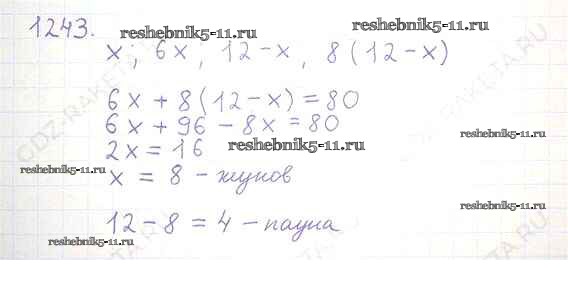 1243.
reshebnik5-11.ru
reshebnik5-11.ru
x; 6x, 12-x, 8(12-x)
6x + 8(12-x) = 80
GDZ-RAKETA.RU
6x + 96 - 8x = 80
reshebnik5-11.ru
2x = 16
reshebnik5-11.ru
reshebnik5-11.ru
x = 8 - жуков
reshebnik5-11.ru
12 - 8 = 4 - паука
reshebnik5-11.ru